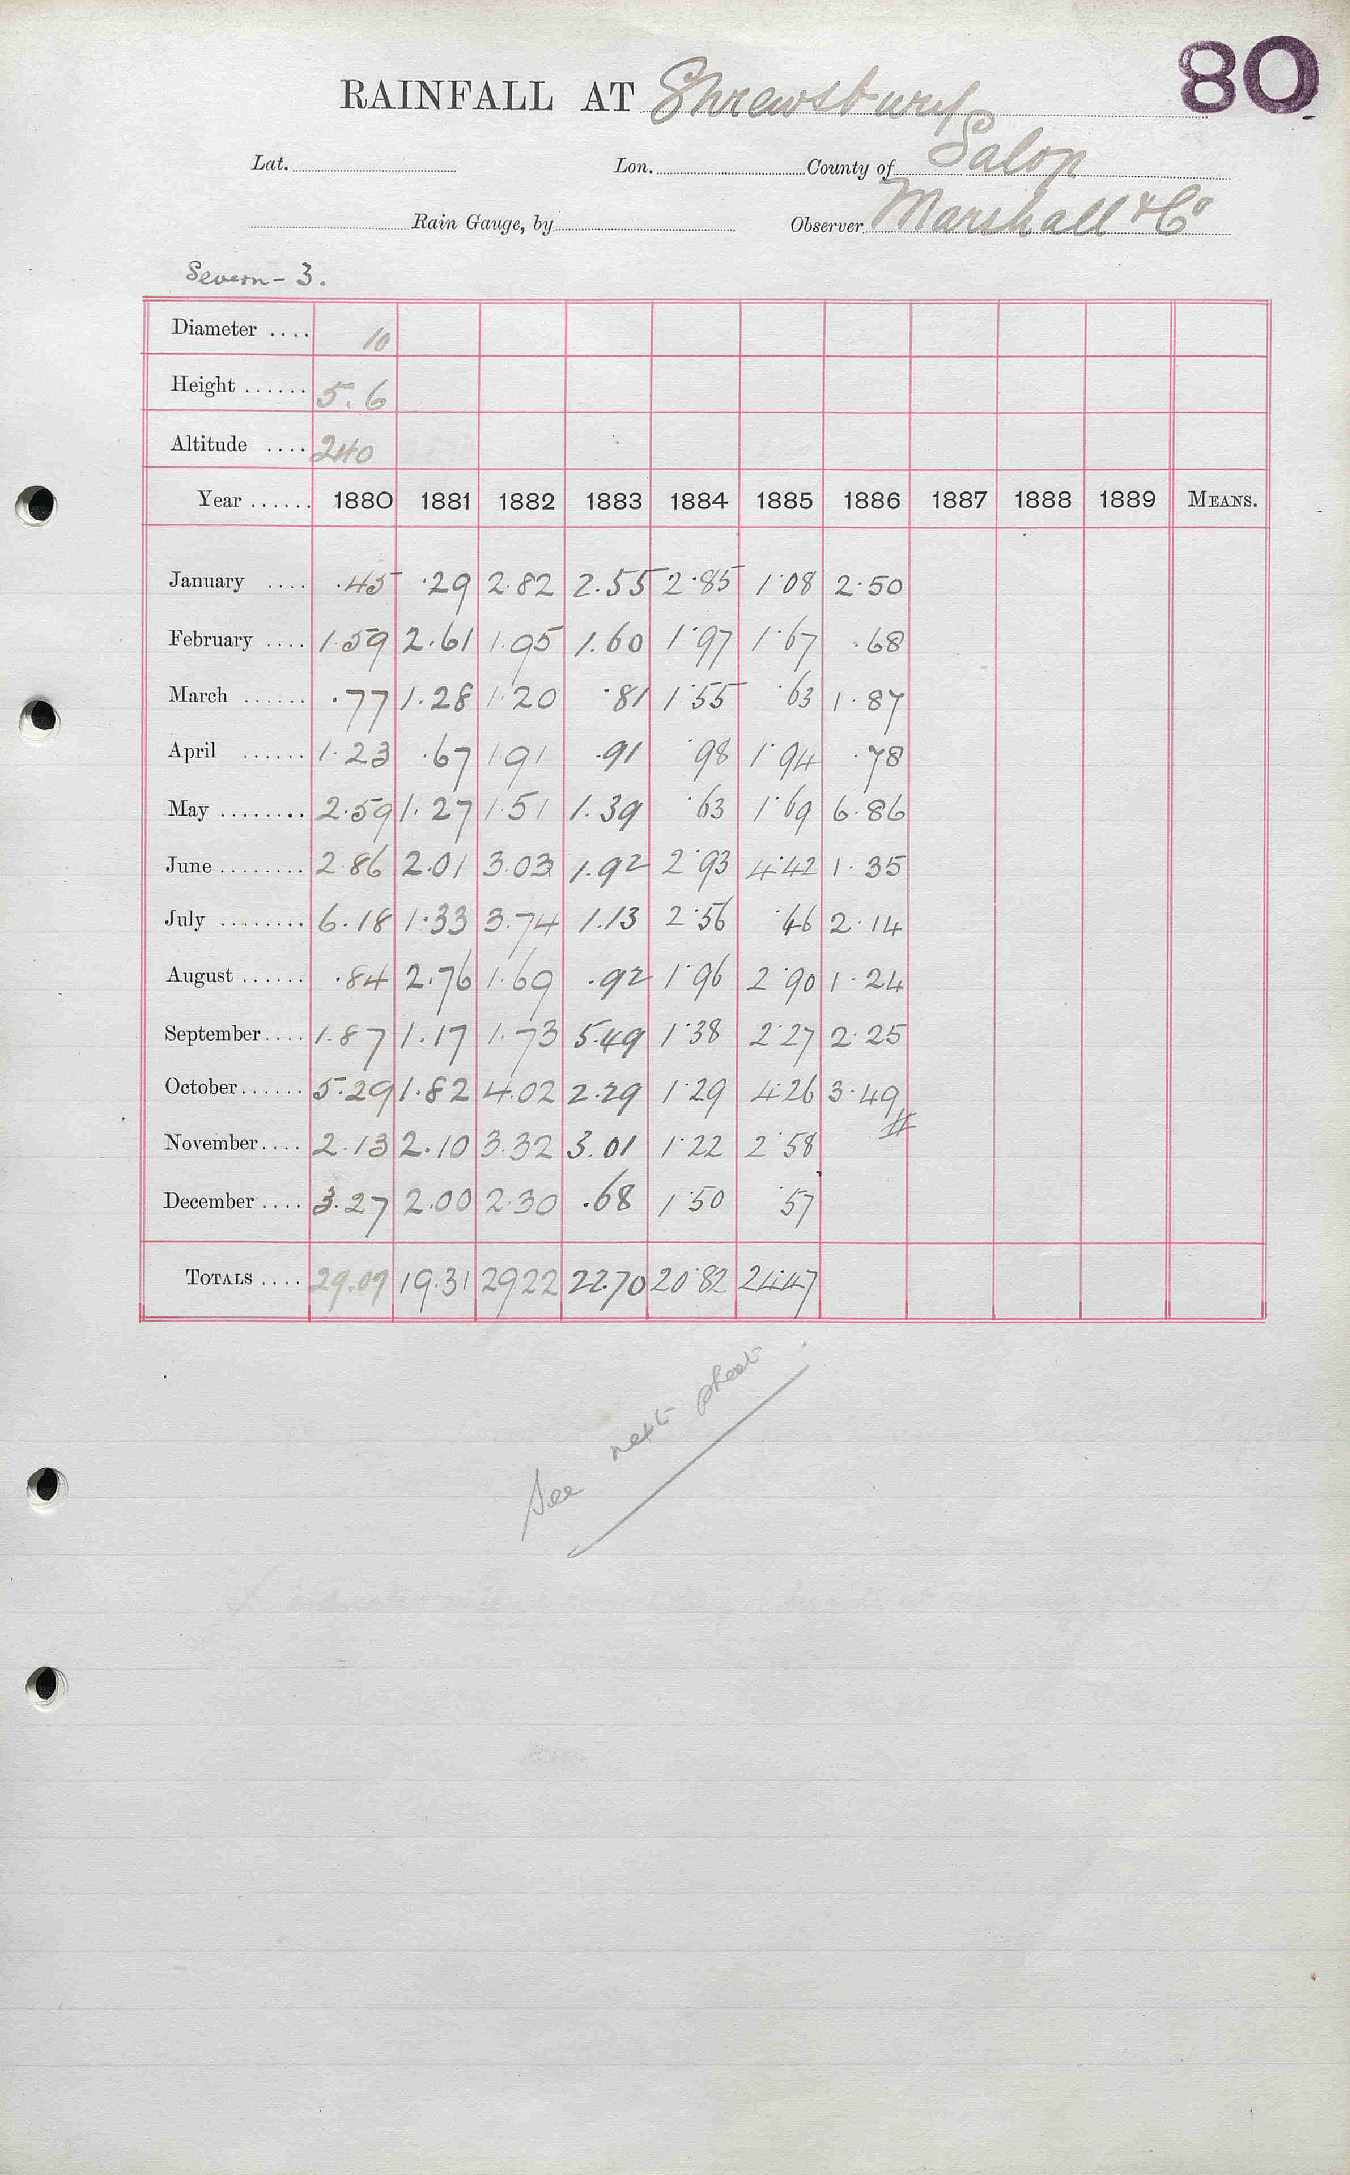 80
RAINFALL AT Shrewsbury
Lat. Lon. County of Salop
Rain Gauge, by Observer Marshall & Co
Severn - 3.
Diameter .... 10
Height ...... 5.6
Altitude .... 240
Year ...... 1880 1881 1882 1883 1884 1885 1886 1887 1888 1889 MEANS.
January .... .45 .29 2.82 2.55 2.85 1.08 2.50
February .... 1.59 2.61 1.95 1.60 1.97 1.67 .68
March ...... .77 1.28 1.20 .81 1.55 .63 1.87
April ...... 1.23 .67 1.91 .91 .98 1.94 .78
May ........ 2.59 1.27 1.51 1.39 .63 1.69 6.86
June ........ 2.86 2.01 3.03 1.92 2.93 4.42 1.35
July ........ 6.18 1.33 3.74 1.13 2.56 .46 2.14
August ...... .84 2.76 1.69 .92 1.96 2.90 1.24
September .... 1.87 1.17 1.73 5.49 1.38 2.27 2.25
October ...... 5.29 1.82 4.02 2.29 1.29 4.26 3.49
November .... 2.13 2.10 3.32 3.01 1.22 2.58
December .... 3.27 2.00 2.30 .68 1.50 .57
TOTALS .... 29.07 19.31 29.22 22.70 20.82 24.47
See next sheet